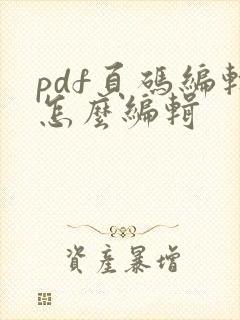 pdf頁碼編輯
怎麼編輯
資產暴增